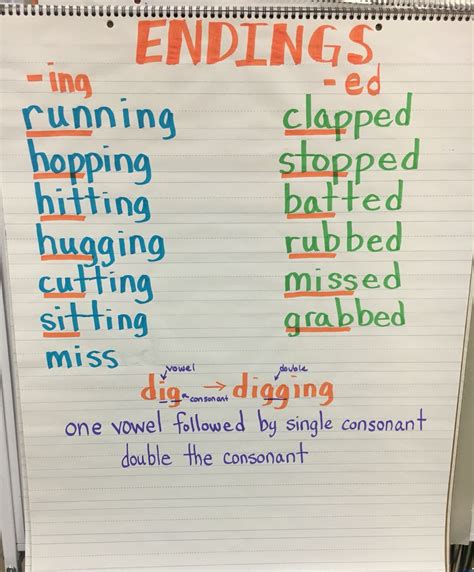 ENDINGS
-ing -ed
running clapped
hopping stopped
hitting batted
hugging rubbed
cutting missed
sitting grabbed
miss
vowel double
dig consonant → digging
one vowel followed by single consonant
double the consonant